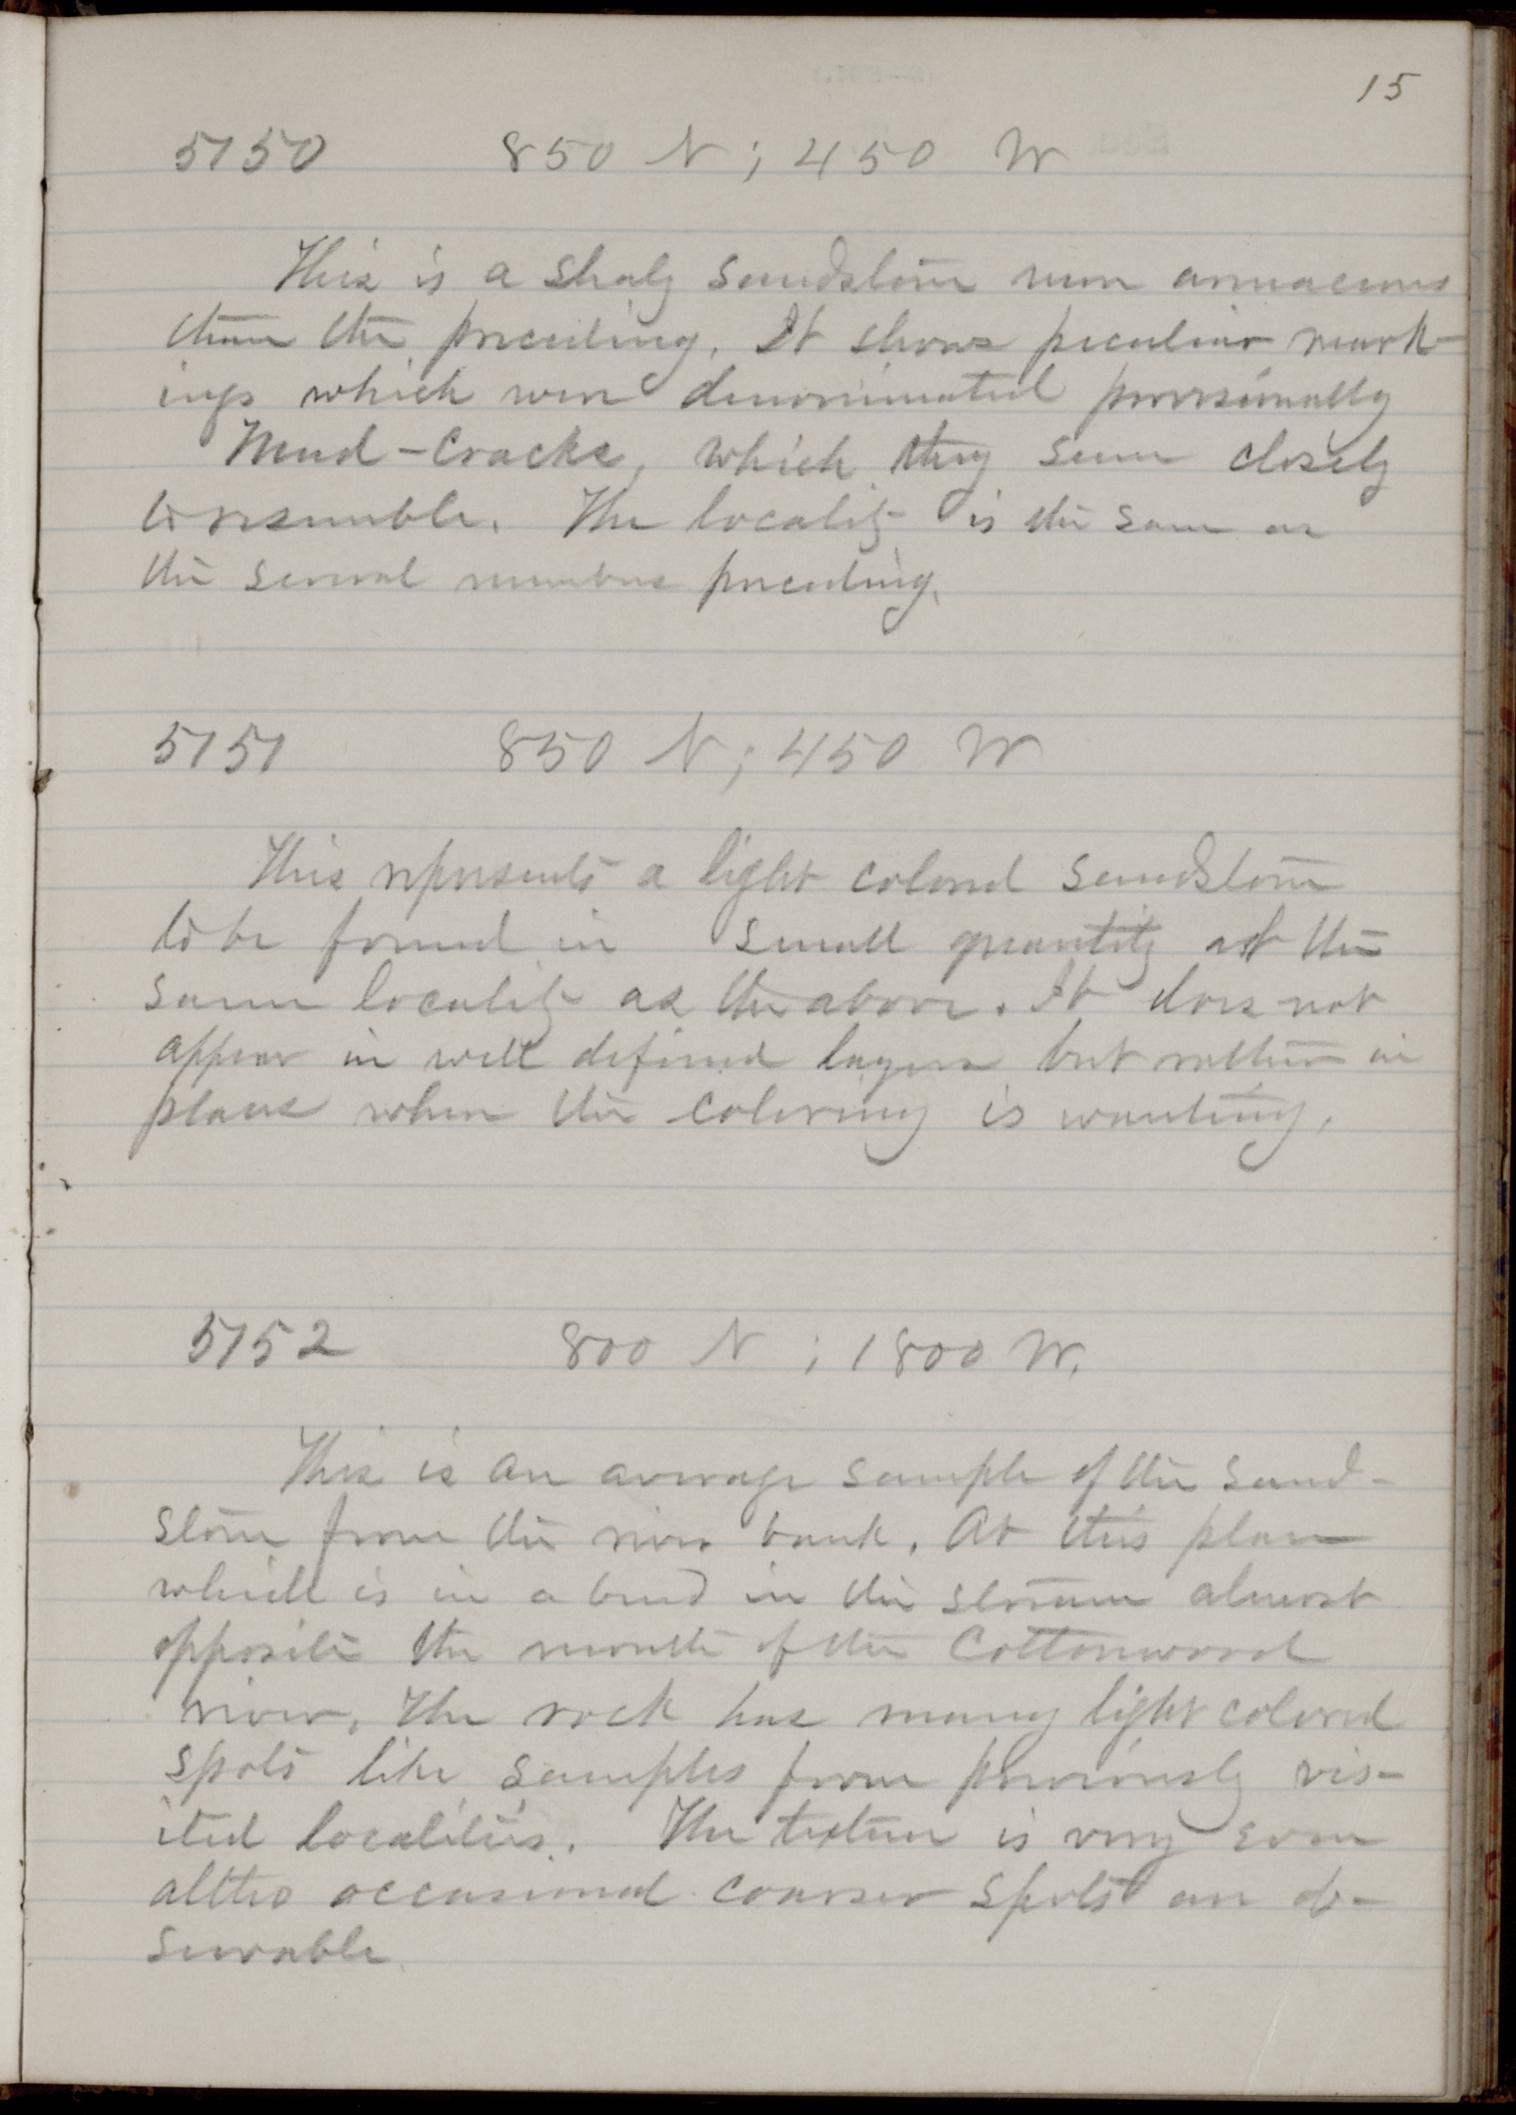 15
5150 850 N; 450 W
This is a shaly sandstone more arenaceous
than the preceding. It shows peculiar mark-
ings which were denominated provisionally
Mud-Cracks, which they seem closely
to resemble. The locality is the same as
the several numbers preceding.
5151 850 N; 450 W
This represents a light colored sandstone
to be found in small quantity at the
same locality as the above. It does not
appear in well defined layers but rather in
places where the coloring is wanting.
5152 800 N; 1800 W.
This is an average sample of the sand-
stone from the river bank. At this place
which is in a bend in the stream almost
opposite the mouth of the Cottonwood
river. The rock has many light colored
spots like samples from previously vis-
ited localities. The texture is very even
altho occasional coarser spots are ob-
servable